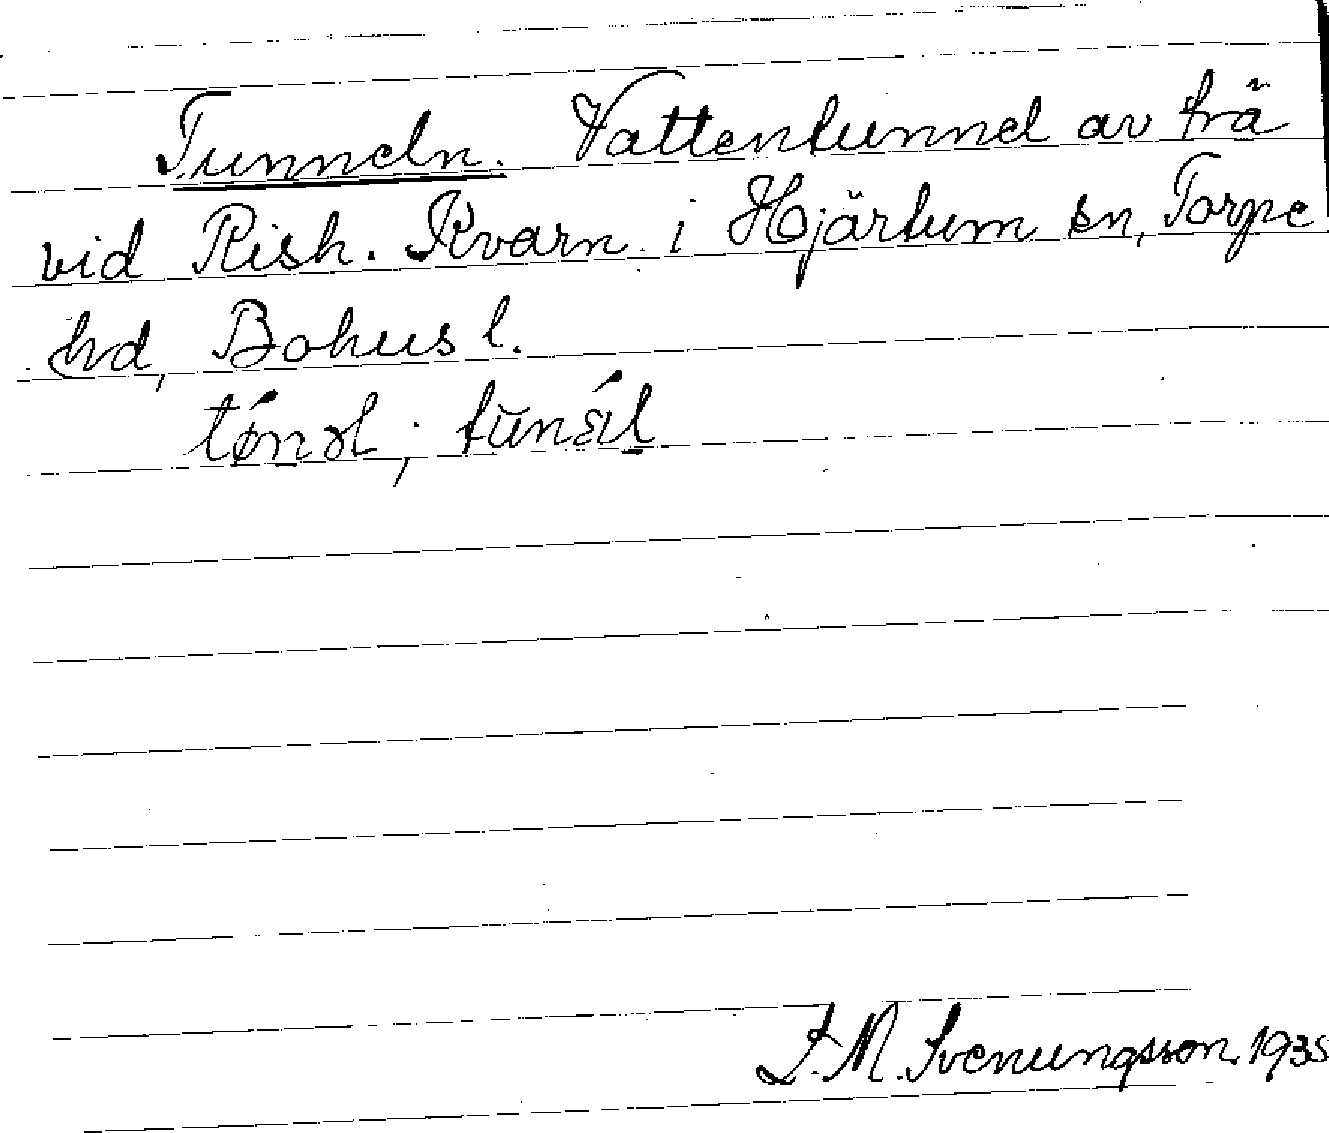 Tunneln. Vattentunnel av trä
vid Rish. Kvarn i Hjärtum sn, Torpe
hd, Bohusl.
tǿnəl; tŭnǽl
M. Svenungsson 1935